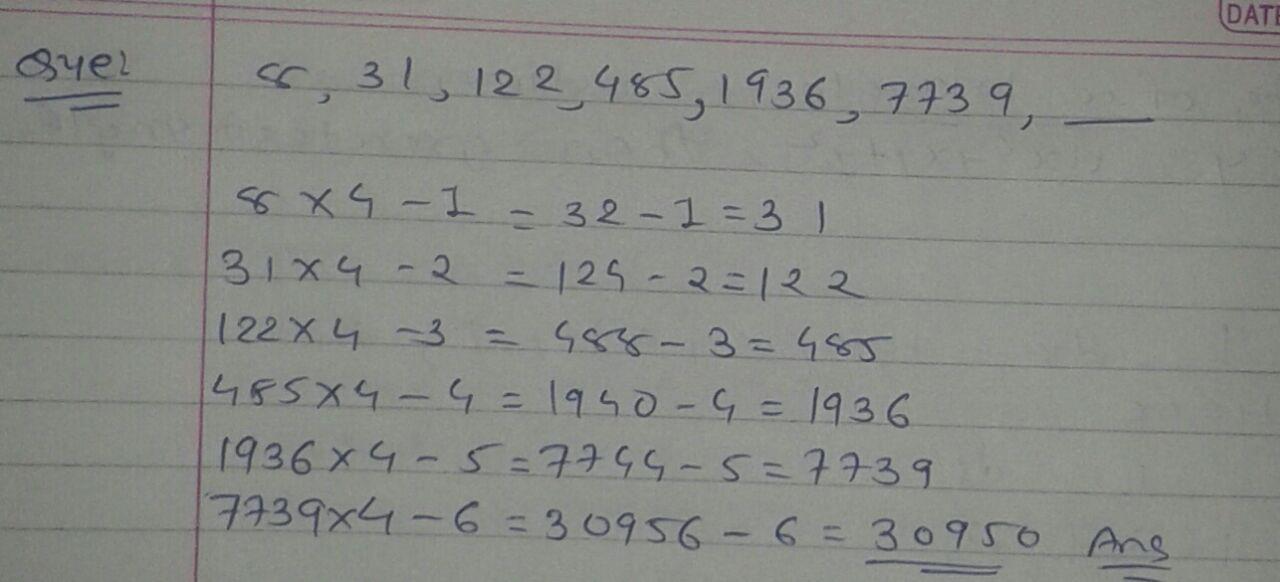 DATE
Que1 8, 31, 122, 485, 1936, 7739, __
8 × 4 - 1 = 32 - 1 = 31
31 × 4 - 2 = 124 - 2 = 122
122 × 4 - 3 = 488 - 3 = 485
485 × 4 - 4 = 1940 - 4 = 1936
1936 × 4 - 5 = 7744 - 5 = 7739
7739 × 4 - 6 = 30956 - 6 = 30950 Ans